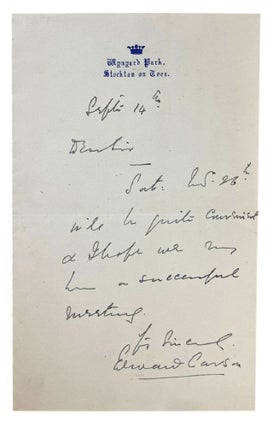 Wynyard Park,
Stockton on Tees.
Sept 14th
Dear Sir
Sat.
will be quite convenient
& I hope we may
have a successful
meeting.
Yrs Sincerely
Edward Carson